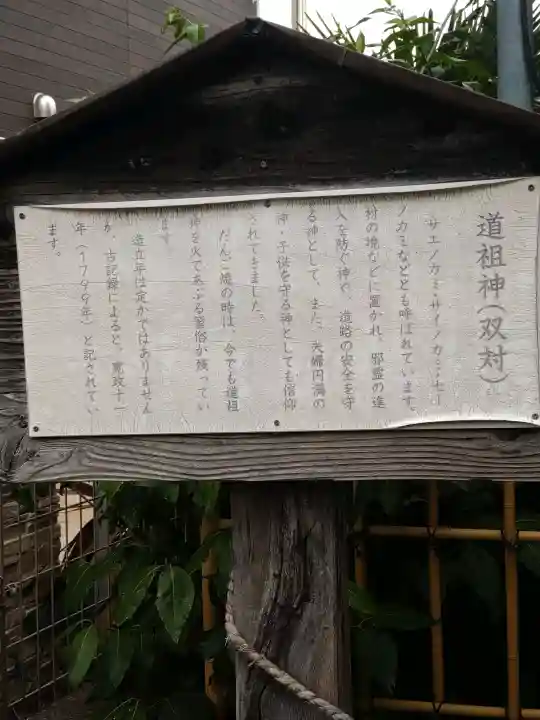 道祖神（双対）
サエノカミ・サイノカミ・セー
ノカミなどとも呼ばれています。
村の境などに置かれ、邪霊の進
入を防ぐ神で、道路の安全を守
る神として、また、夫婦円満の
神・子供を守る神としても信仰
されてきました。
だんご焼の時は、今でも道祖
神を火であぶる習俗が残ってい
ます。
造立年は定かではありません
が、古記録によると、寛政十一
年（1799年）と記されてい
ます。